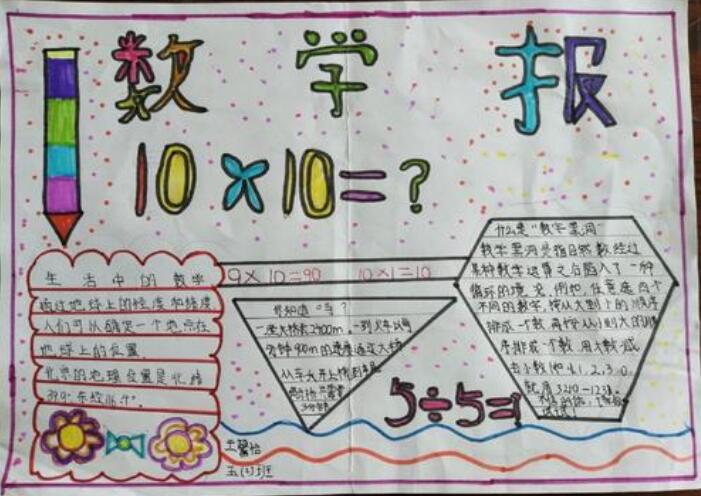 数学报
10×10=?
生活中的数学
通过地球上的经度和纬度
人们可以确定一个地点在
地球上的位置.
北京的地理位置是北纬
39.9°东经116.4°
9×10=90
10×1=10
你知道吗?
一座大桥长2400m,一列火车以每
分钟900m的速度通过大桥
从车头开上桥到车尾
3分钟
什么是“数学黑洞”
数学黑洞是指自然数经过
某种数学运算之后陷入了一种
循环的境况,例如,任意选四个
不同的数字,按从大到小的顺序
排成一个数,再按从小到大的顺
序排成一个数,用大数减
去小数(如4,1,2,3:0,
就用3210-1238.
试试!
5÷5=1
五(2)班